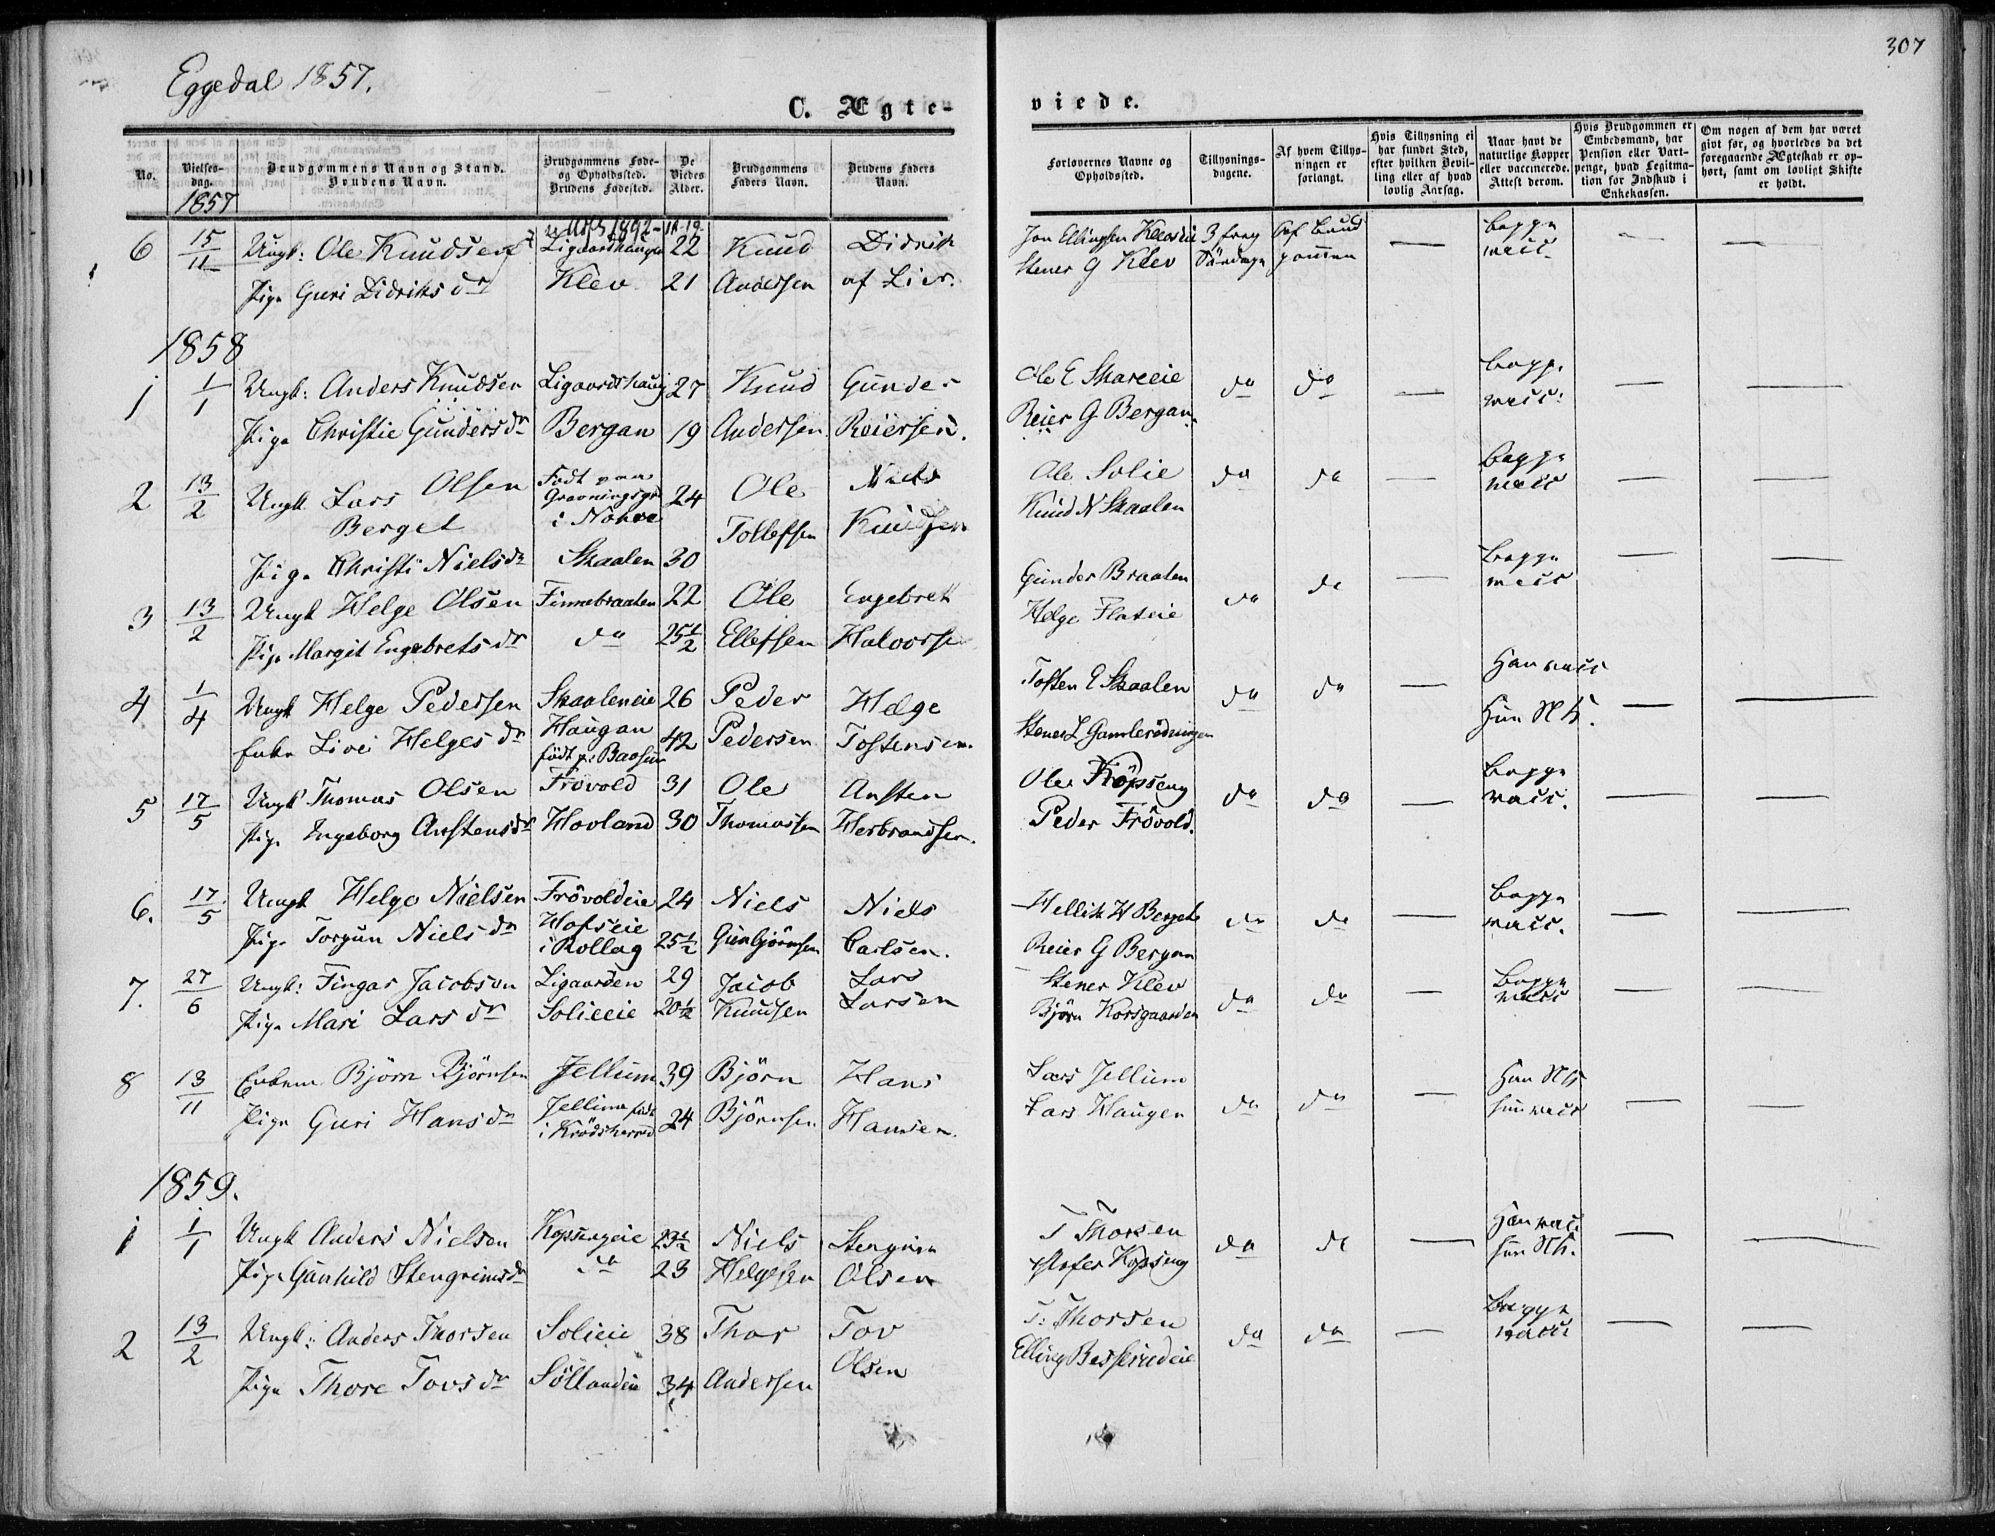 307
Eggedal 1857.
C. Ægte-
viede.
No.
Vielses-
dag.
Brudgommens Navn og Stand.
Brudens Navn.
Brudgommens Føde-
og Opholdssted.
Brudens Fødested.
De
Viedes
Alder.
Brudgommens
Faders Navn.
Brudens Faders
Navn.
Forlovernes Navne og
Opholdssted.
Tillysnings-
dagene.
Af hvem Tillys-
ningen er
forlangt.
Hvis Tillysning ei
har fundet Sted,
efter hvilken Bevil-
ling eller af hvad
lovlig Aarsag.
Naar havt de
naturlige Kopper
eller vaccinerede.
Attest derom.
Hvis Brudgommen er
Embedsmand, har
Pension eller Vart-
penge, hvad Legitima-
tion for Indskud i
Enkekassen.
Om nogen af dem har været
givt før, og hvorledes da det
foregaaende Ægteskab er op-
hørt, samt om lovligt Skifte
er holdt.
1857
6 15/11 Ungk: Ole Knudsen Ligaardshaugen 22 Knud Didrik Jon Ellingsen 3 foreg Brud begge
Pige Guri Didriks dr Klev 21 Andersen af Lier. Stener G Klev Søndage gommen vacc.
1858
1 1/1 Ungk: Anders Knudsen Ligaardshaug 27 Knud Gunder Ole E Skareeie do do — begge — —
Pige Christie Gunders dr Bergan 19 Andersen Reiersen. Reier G Bergan vacc:
2 13/2 Ungk Lars Olsen Født paa 24 Ole Niels Ole Solie do do — begge — —
Berget i Tollefsen Knudsen Knud N Skaalen vacc
Pige Christi Niels dr Skaalen 30
3 13/2 Ungk Helge Olsen Finnebraaten 22 Ole Engebret Gunder Braaten do do — begge — —
Pige Margit Engebrets dr do 25½ Ellefsen Halvorse Helge Flateie vacc
4 1/4 Ungk Helge Pedersen Skaaleneie 26 Peder Helge Tosten E Skaalen do do — Han vacc — —
Enke Livi Helges dr Haugan 42 Pedersen Tostensen. Stener L Hun N K.
født p:
5 17/5 Ungk Thomas Olsen Frövold 31 Ole Ansten Ole Köpseng do do — begge — —
Pige Ingeborg Anstens dr Hovland 30 Thomassen Herbrandsen. Peder Frövold. vacc.
6. 17/5 Ungk Helge Nielsen Frövoldeie 24 Niels Niels Hellik H Berget do do — begge — —
Pige Torgun Niels dr Hofseie i Rollag 25½ Gunbjörnsen Carlsen. Reier G Bergan vacc.
7. 27/6 Ungk: Fingar Jacobsen Ligaarden 29 Jacob Lars Stener Klev do do — Begge — —
Pige Mari Lars dr Solieeie 20½ Knudsen Larsen Björn Korsgaarden vacc
8 13/11 Enkem Björn Björnsen Jellum 39 Björn Hans Lars Jellum do do — Han N K — —
Pige Guri Hans dr Jellum født i Krödsherred 24 Björnsen Hansen. Lars Haugen hun vacc
1859.
1 1/1 Ungk Anders Nielsen Kopsengeie 23½ Niels Stengrim T Thorsen do do — Han vacc. — —
Pige Gunhild Stengrims dr do 23 Helgesen Olsen Kopseng hun N K.
2 13/2 Ungk: Anders Thorsen Solieie 38 Thor Tov T: Thorsen do do — Begge — —
Pige Thore Tovs dr 34 Andersen Olsen Elling vacc